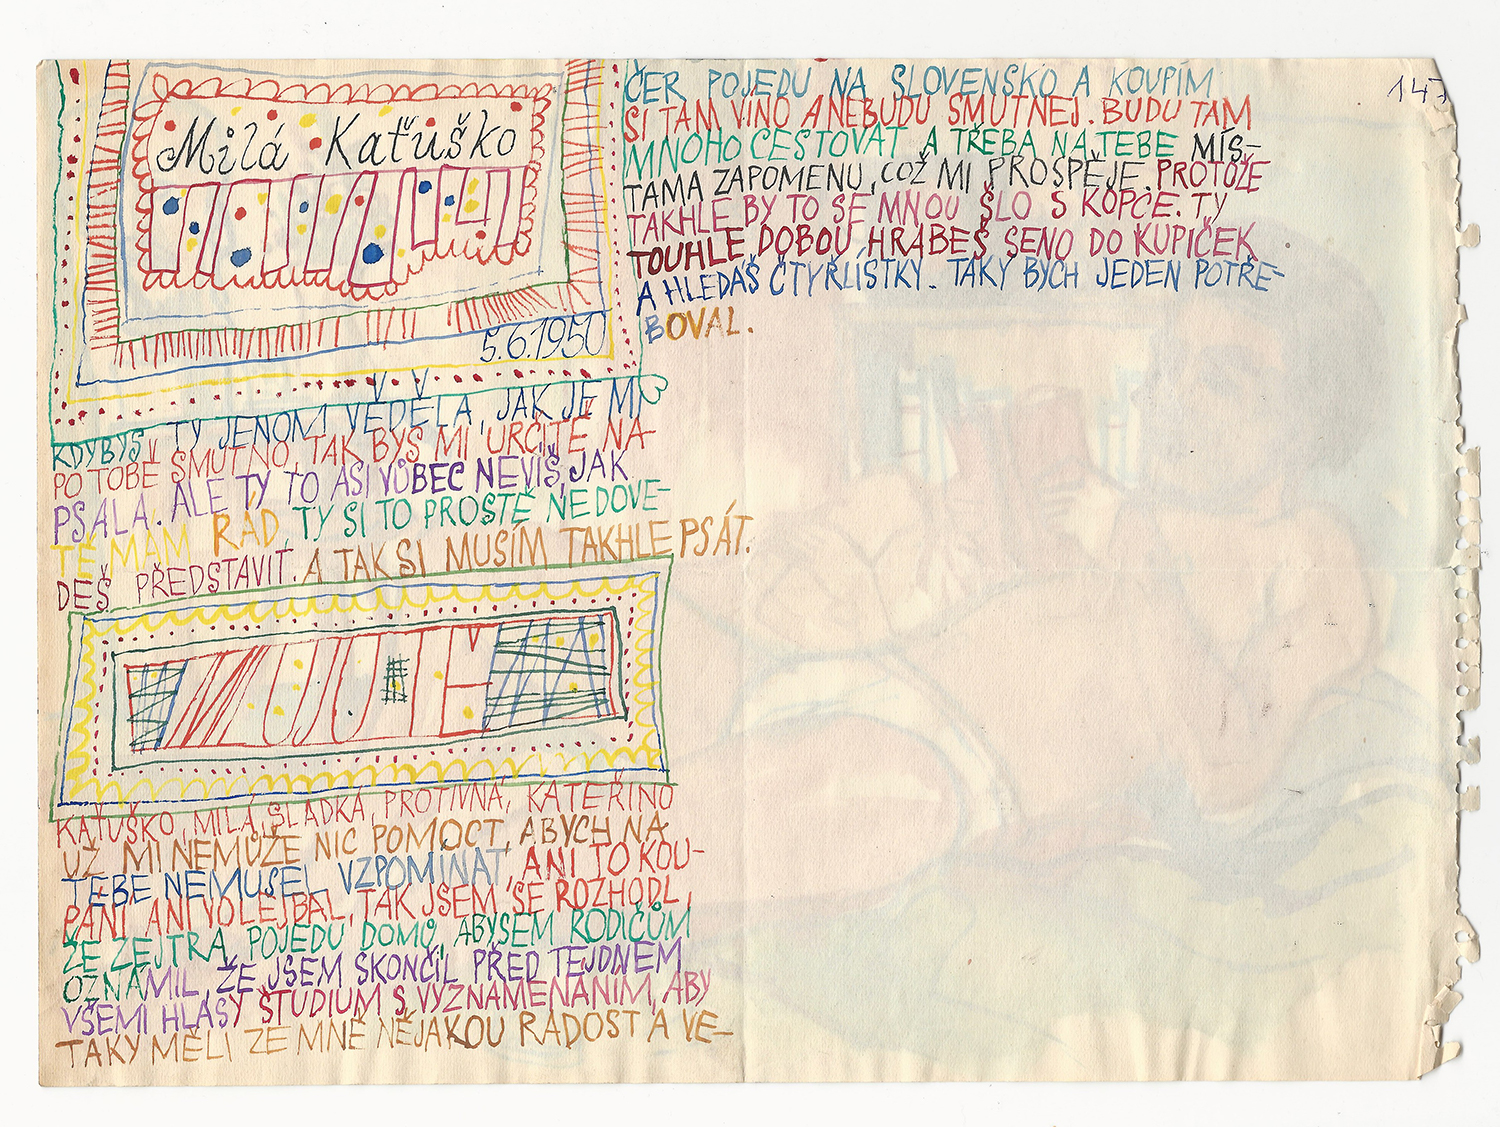 Milá Kaťuško
5.6.1950
KDYBYS TY JENOM VĚDĚLA, JAK JE MI
PO TOBĚ SMUTNO, TAK BYS MI URČITĚ NA-
PSALA. ALE TY TO ASI VŮBEC NEVÍŠ, JAK
TĚ MÁM RÁD, TY SI TO PROSTĚ NEDOVE-
DEŠ PŘEDSTAVIT. A TAK SI MUSÍM TAKHLE PSÁT.
KAŤUŠKO, MILÁ, SLADKÁ, PROTIVNÁ, KATEŘINO
UŽ MI NEMŮŽE NIC POMOCT, ABYCH NA
TEBE NEMUSEL VZPOMÍNAT, ANI TO KOU-
PÁNÍ ANI VOLEJBAL, TAK JSEM SE ROZHODL,
ŽE ZEJTRA POJEDU DOMŮ, ABYSEM RODIČŮM
OZNÁMIL, ŽE JSEM SKONČIL PŘED TEJDNEM
VŠEMI HLASY STUDIUM S VYZNAMENÁNÍM, ABY
TAKY MĚLI ZE MNĚ NĚJAKOU RADOST A VE-
ČER POJEDU NA SLOVENSKO A KOUPÍM
SI TAM VÍNO A NEBUDU SMUTNEJ. BUDU TAM
MNOHO CESTOVAT A TŘEBA NA TEBE MÍS-
TAMA ZAPOMENU, COŽ MI PROSPĚJE. PROTOŽE
TAKHLE BY TO SE MNOU ŠLO S KOPCE. TY
TOUHLE DOBOU HRABEŠ SENO DO KUPIČEK
A HLEDÁŠ ČTYŘLÍSTKY. TAKY BYCH JEDEN POTŘE-
BOVAL.